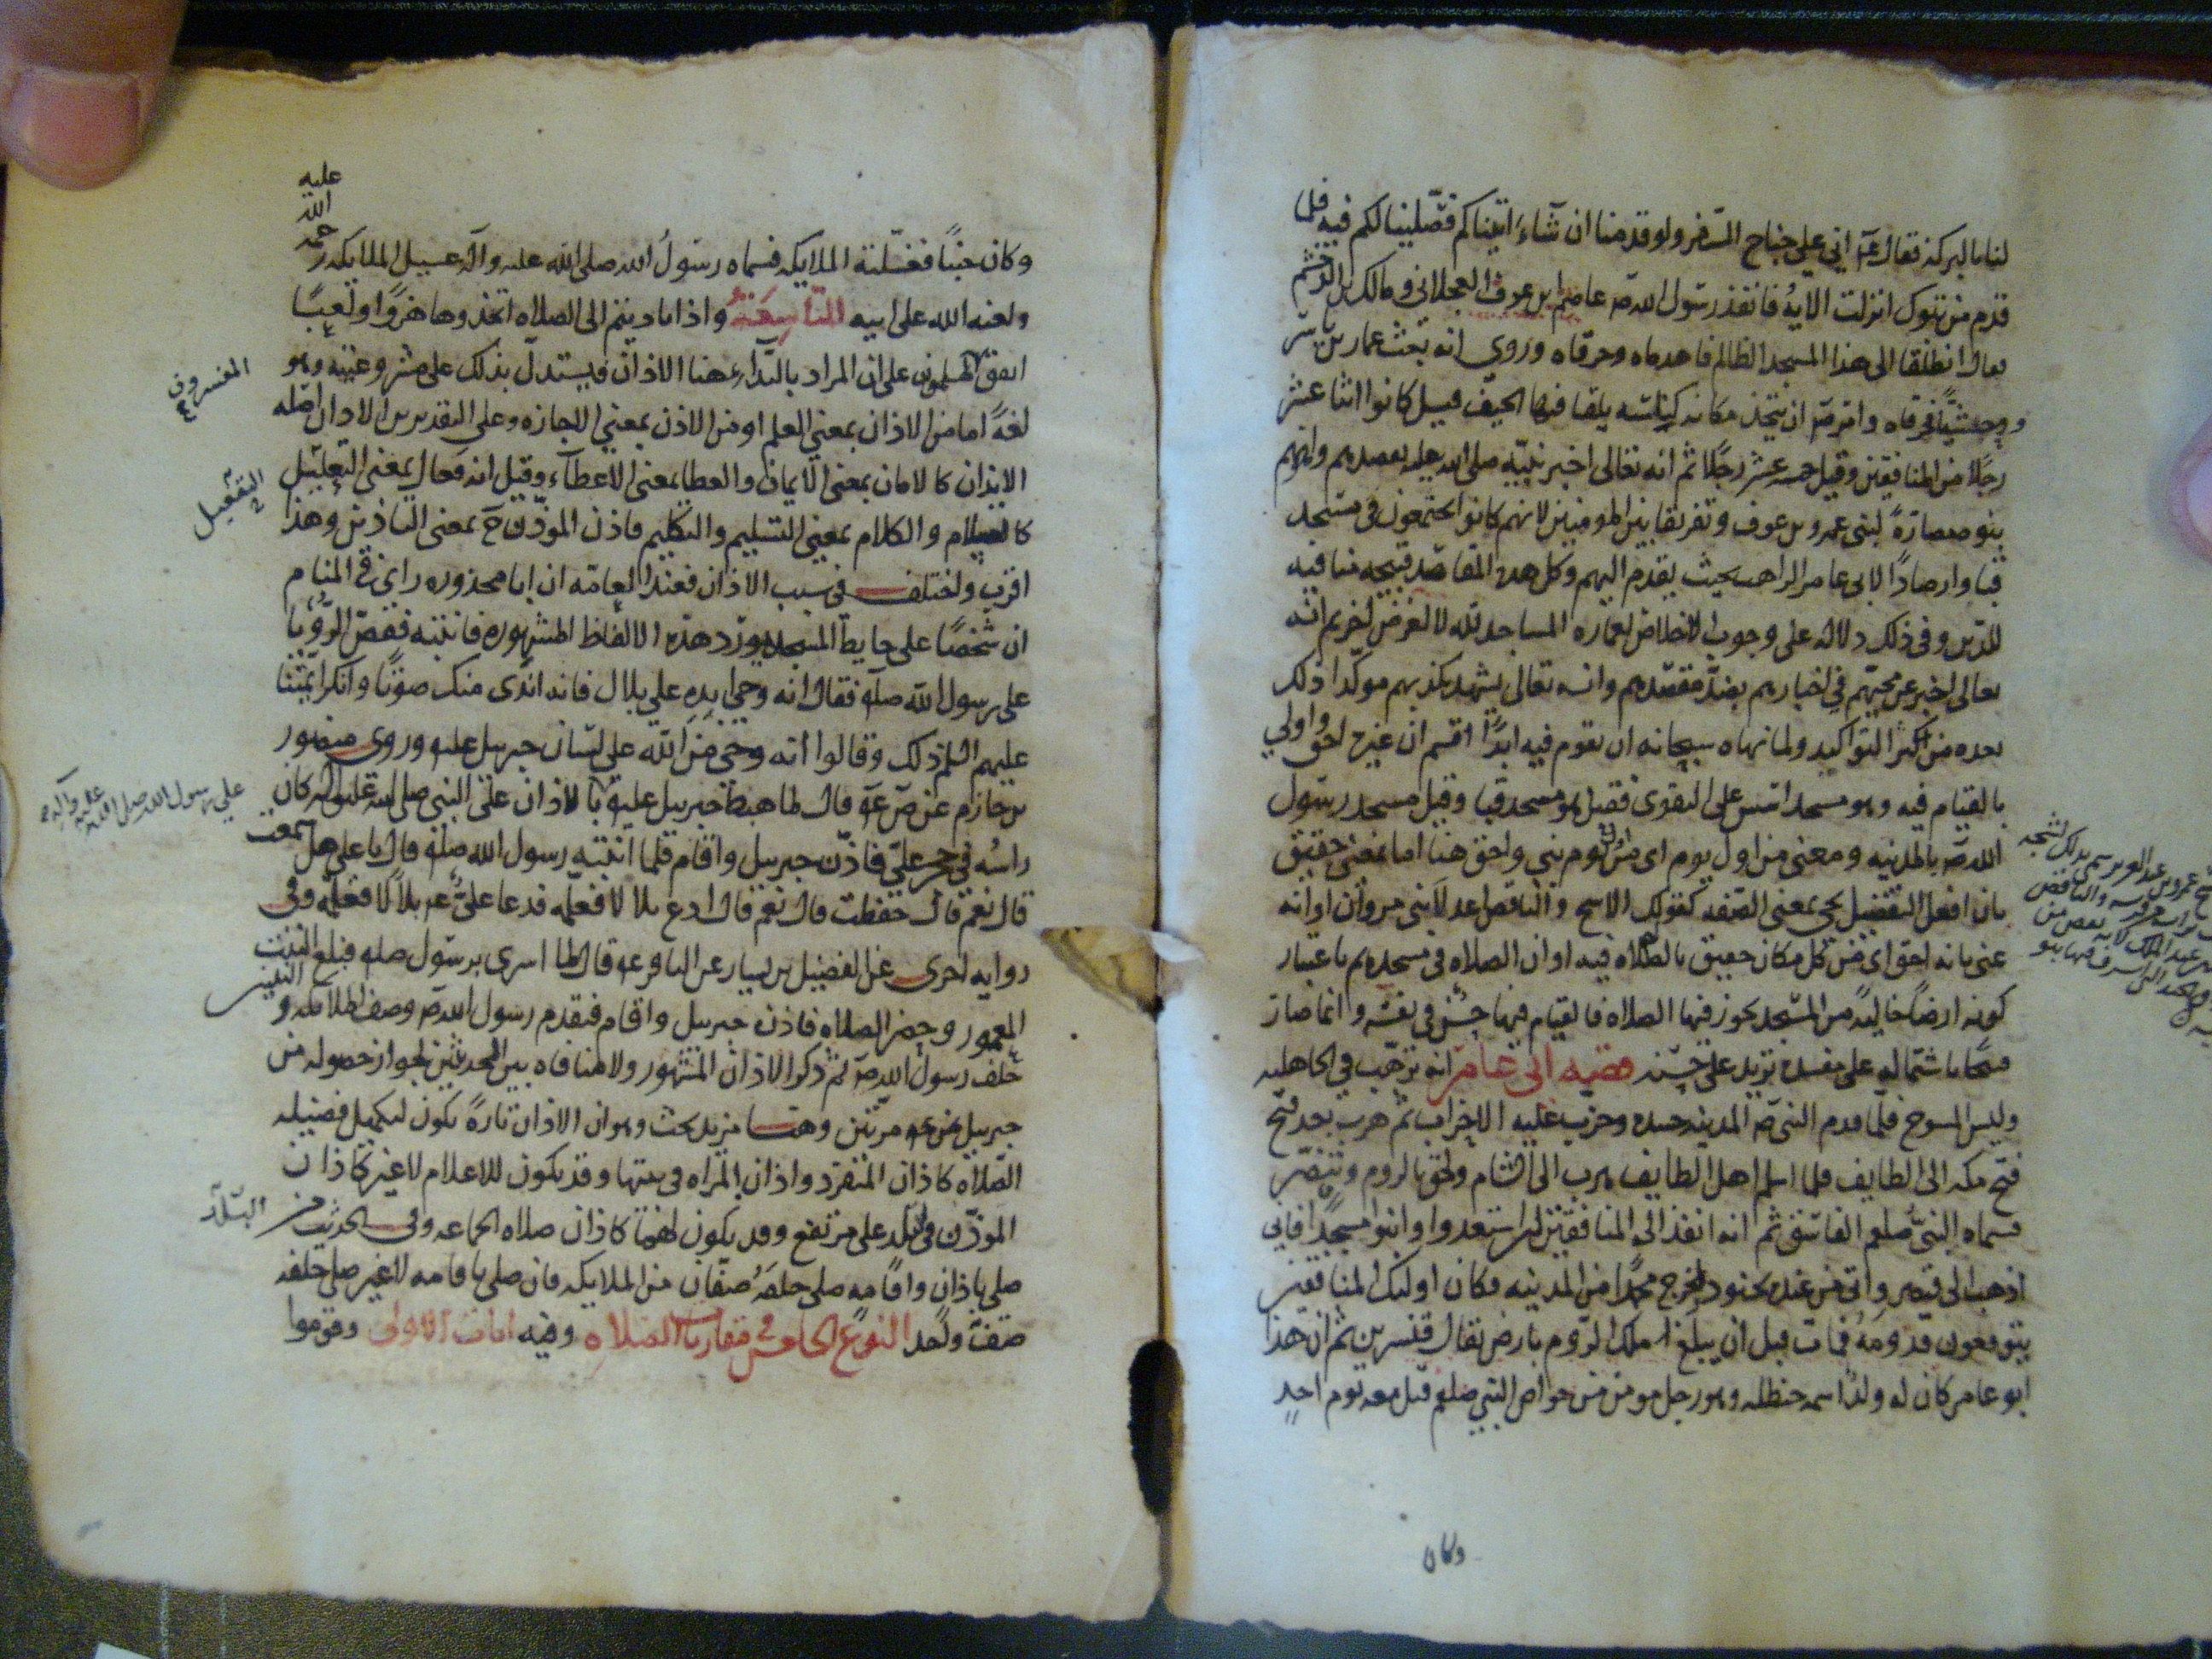 لنا بالبركة فقال عم اني على جناح السفر ولو قدمنا ان شاء اتيناكم فصلينا لكم فيه فلما
قدم من تبوك انزلت الايه فانفذ رسول الله ص عاصم ابن عوف العجلاني ومالك بن الدخشم
فقال انطلقا الى هذا المسجد الظالم فاهدماه وحرقاه وروى انه بعث عمار بن ياسر
ووحشيا فحرقاه وامر ص ان يتخذ مكانه كناسه يلقا فيها الجيف قيل كانوا اثنا عشر
رجلا من المنافقين وقيل خمسه عشر رجلا ثم انه تعالى اخبر نبيه صلى الله عليه بقصدهم وانهم
بنوه مضارة لبنى عمرو بن عوف وتفريقا بين المومنين لانهم كانوا يجتمعون في مسجد
قبا وارصادا لابى عامر الراهب بحيث يقدم اليهم وكل هذه المقاصد قبيحه منافيه
للدين وفى ذلك دلاله على وجوب الاخلاص بعماره المساجد لله لا لغرض اخر ثم انه
تعالى اخبر عن في اخبارهم بضد مقصدهم وانه تعالى يشهد بكذبهم موكدا ذلك
بعده من اكثر التواكيد ولما نهاه سبحانه ان يقوم فيه ابدا اقسم ان غيره احق واولى
بالقيام فيه وهو مسجد اسس على التقوى فقيل هو مسجد قبا وقيل مسجد رسول
الله ص بالمدينه ومعنى من اول يوم اى من اول يوم بنى واحق هنا اما بمعنى حقيق
بان افعل التفضيل يجى بمعنى الصفه كقولك الاشج والناقص اعدلا بنى مروان او انه
عنى بانه احق اى من كل مكان حقيق بالصلاه فيه او ان الصلاه في مسجدهم باعتبار
كونه ارضا خاليه من المسجد يجوز فيها الصلاه فالقيام فيها حسن في نفسه وانما صار
قبيحا باشتماله على مفسده تزيد على حسنه قضيه ابى عامر انه ترهب في الجاهليه
ولبس المسوح فلما قدم النبى ص المدينه حسده وحزب عليه الاحزاب ثم هرب بعد فتح
فتح مكه الى الطايف فلما اسلم اهل الطايف هرب الى الشام ولحق بالروم وتنصر
فسماه النبى صلعم الفاسق ثم انه انفذ الى المنافقين ان استعدوا وابنوا مسجدا فاني
اذهب الى قيصر واتى من عنده بجنود ليخرج محمدا من المدينه فكان اوليك المنافقين
يتوقعون قدومه فمات قبل ان يبلغ ملك الروم بارض يقال قنسرين ثم ان هذا
ابو عامر كان له ولدا اسمه حنظله وهو رجل مومن من خواص النبى صلعم قتل معه يوم احد
وكان
عليه
الله
رحمة
وكان جنبا فغسلته الملايكه فسماه رسول الله صلى الله عليه وآله غسيل الملايكه
ولعنه الله على ابيه التاسعة واذا ناديتم الى الصلاه اتخذوها هزوا ولعبا
اتفق المسلمون على ان المراد بالندا هنا الاذان فيستدل بذلك على مشروعيته وهو
المفسرون
لغة اما من الاذان بمعنى العلم او من الاذن بمعنى الاجازه وعلى التقديرين الاذان اصله
الايذان كالامان بمعنى الايمان والعطا بمعنى الاعطآء وقيل انه فعال بمعنى التعليل
التفعيل
كالسلام والكلام بمعنى التسليم والتكليم فاذن الموذن ح بمعنى التاذين وهذا
اقرب واختلف في سبب الاذان فعند العامه ان ابا محذوره راى في المنام
ان شخصا على حايط المسجد يورد هذه الالفاظ المشهوره فانتبه فقص الرويا
على رسول الله صله فقال انه وحى ابده على بلال فانه اندى منك صوتا وانكر ايمتنا
عليهم السلم ذلك وقالوا انه وحى من الله على لسان جبريل عليه وروى منصور
بن حازم عن ص ع قال لما هبط جبريل عليه بالاذان على النبى صلى الله عليه واله كان
على رسول الله صلى الله عليه وآله
راسه في حجر على فاذن جبريل واقام فلما انتبه رسول الله صله قال يا على هل سمعت
قال نعم قال حفظت قال نعم قال ادع بلالا فعلمه فدعا على ع بلالا فعلمه وفى
روايه اخرى عن الفضيل بن يسار عن الباقر ع قال لما اسرى برسول صله فبلغ البيت
المعمور وحضر الصلاه فاذن جبريل واقام فتقدم رسول الله ص وصف الملايكه و
النبيين
خلف رسول الله ص ثم ذكر الاذان المشهور ولا منافاه بين الحديثين لجواز حصوله من
جبريل ع مرتين وهنا مزيد بحث وهو ان الاذان تارة يكون لتكميل فضيله
الصلاه كاذان المنفرد واذان المراه في بيتها وقد يكون للاعلام لا غير كاذان
الموذن في البلد على مرتفع وقد يكون لهما كاذان صلاه الجماعه وفى الحديث من
البلد
صلى باذان واقامه صلى خلفه صفان من الملايكه فان صلى باقامه لا غير صلى خلفه
صف واحد النوع الخامس في مقارنات الصلاه وفيه ايات الاولى وقوموا